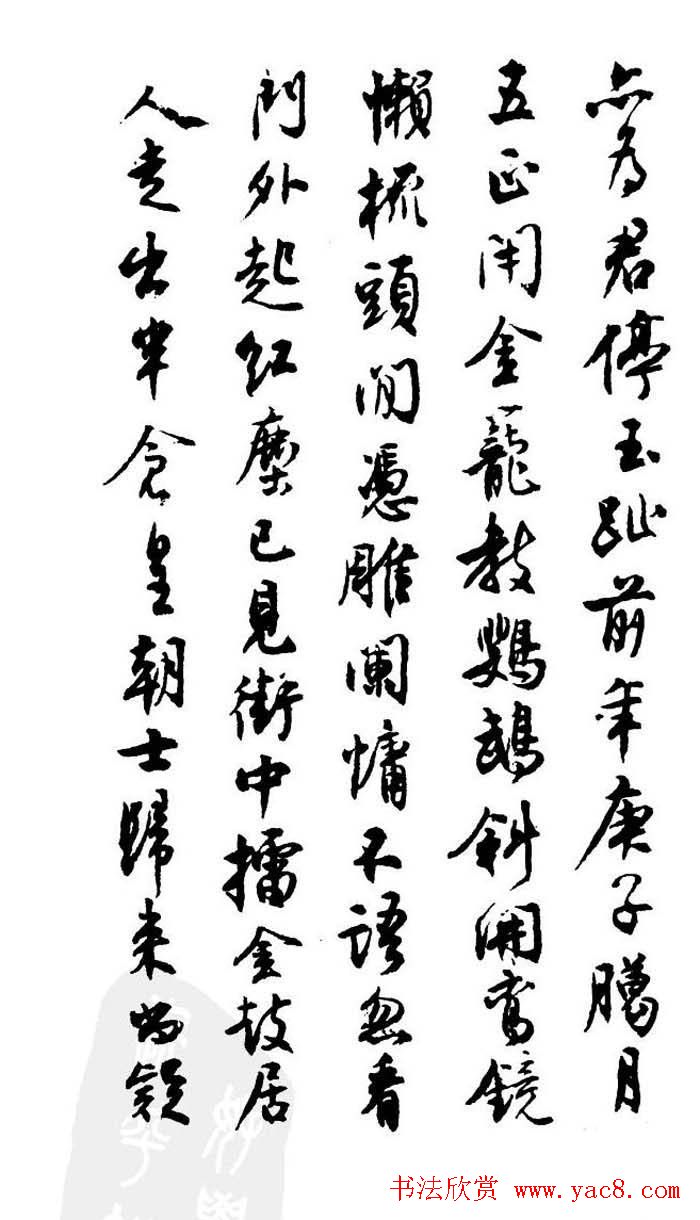 亦为君停玉趾前年庚子腊月
五正闭金籠教鸚鵡斜開鸾鏡
懶梳頭閒憑雕阑慵不語忽看
门外起红塵已見街中擂金鼓居
人走出半倉皇朝士歸来尚疑
书法欣赏 www.yac8.com